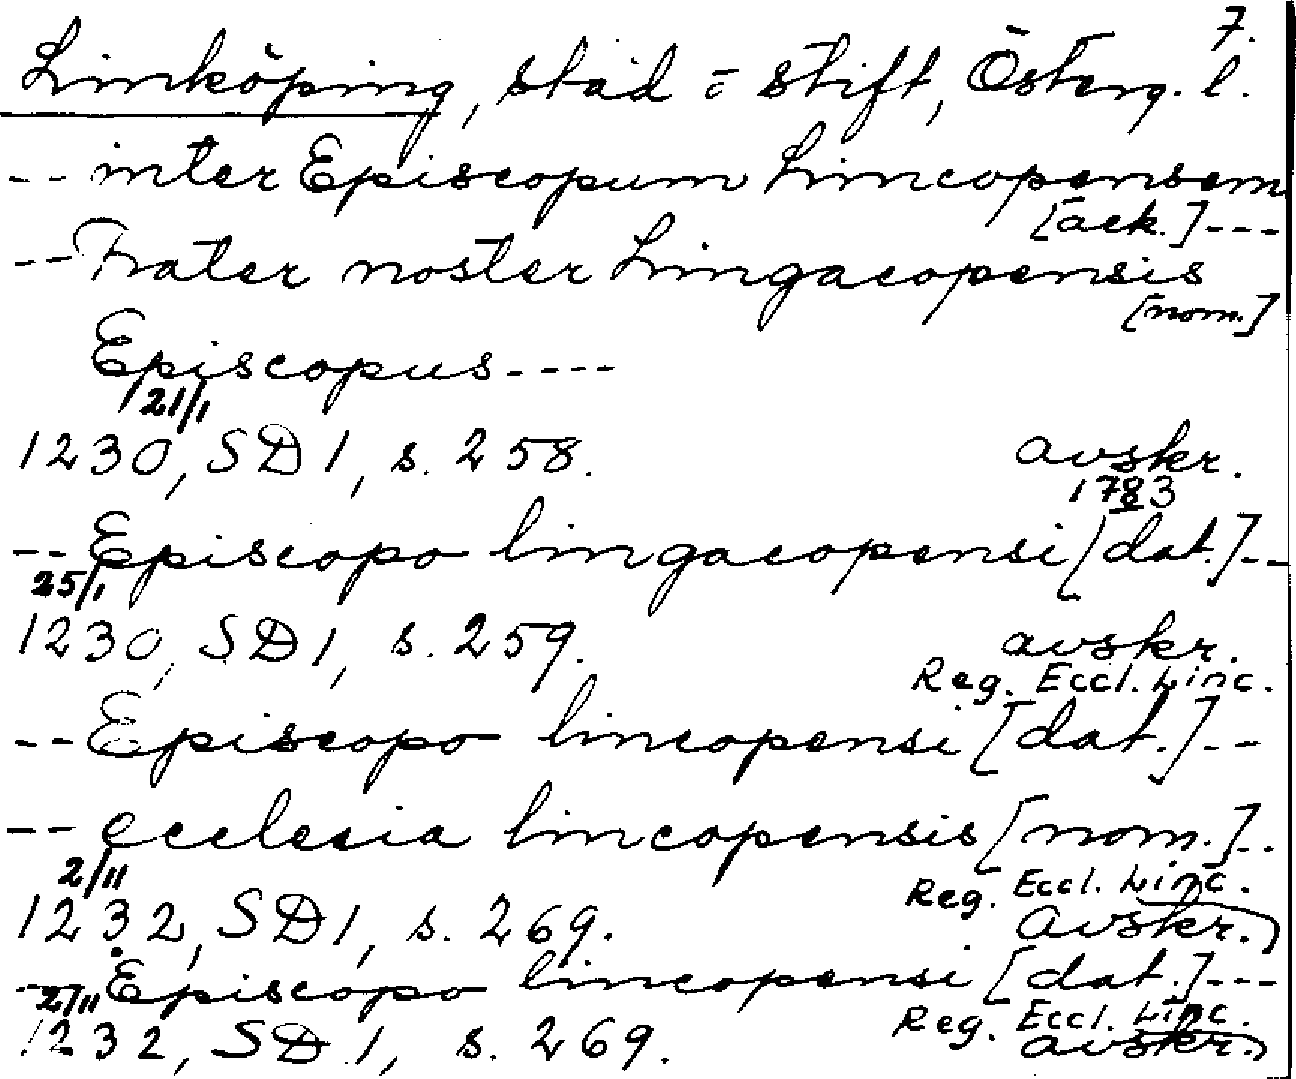 7.
Linköping, stad = stift, Österg. l.
-- inter Episcopum Lincopensem
[ack.]---
-- Frater noster Lingacopensis
[nom.]
Episcopus----
21/1
1230, SD 1, s. 258. avskr.
1783
-- Episcopo lingacopensi [dat.]--
25/1
1230, SD 1, s. 259. avskr.
Reg. Eccl. Linc.
-- Episcopo lincopensi [dat.]--
-- ecclesia lincopensis [nom.]--
2/11 Reg. Eccl. Linc.
1232, SD 1, s. 269. avskr.)
-- Episcopo lincopensi [dat.]---
2/11 Reg. Eccl. Linc.
1232, SD 1, s. 269. avskr.)